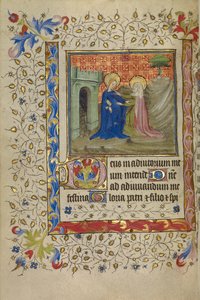 Deus in adiutorium me
um intende Dne
ad adiuuandum me
festina Gloria patri et filio et spi